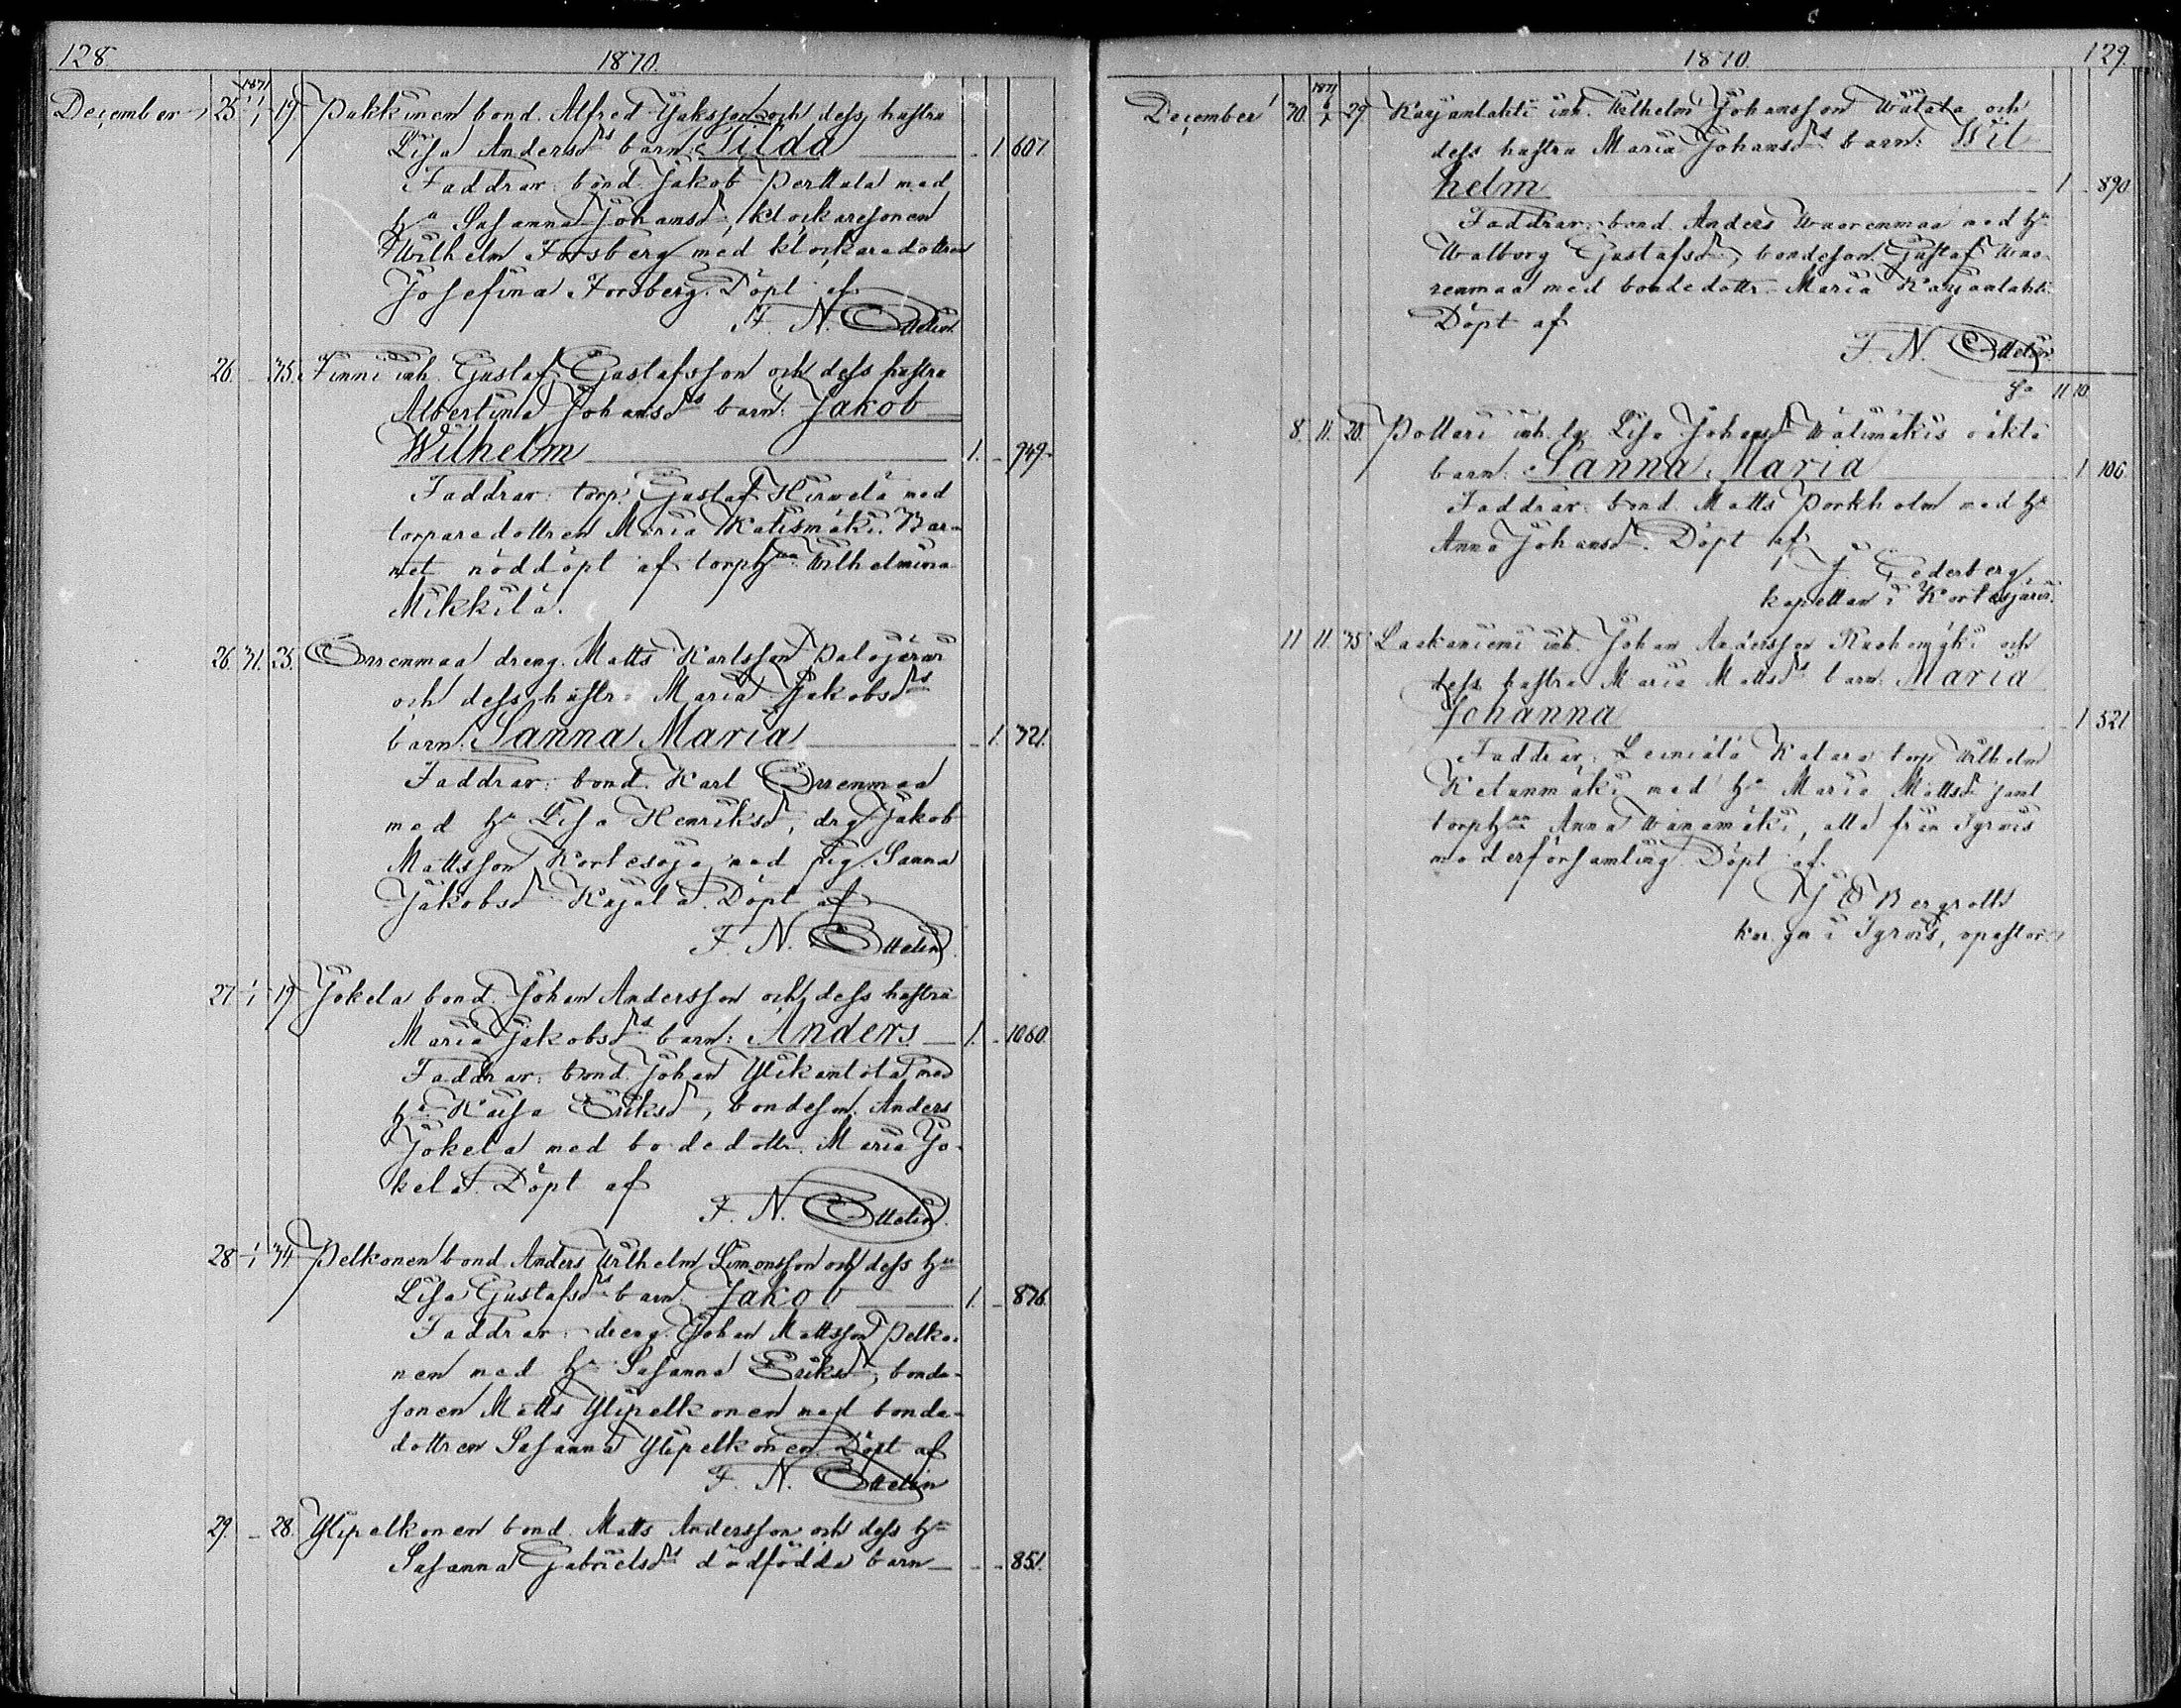 128. 1870.
1871
December 25. 1/1 19. Pukkinen bond. Alfred Jaksson och dess hustru
Lisa Andersdrs barn: Tilda 1 607.
Faddrar: bond. Jakob Perttala med
hu Susanna Johansdr, klockaresonen
Wilhelm Forsberg med klockaredottren
Josefina Forsberg. Döpt af
F. N. Ottelin.
26. – 35. Finni inh. Gustaf Gustafsson och dess hustru
Albertina Johansdrs barn: Jakob
Wilhelm 1. – 949.
Faddrar: torp. Gustaf Hirvelä med
torparedottren Maria Katismäki. Bar-
net nöddöpt af torphun Wilhelmina
Mikkilä.
26. 31. 25. Orrenmaa dreng. Matts Karlsson Palojärvi
och dess hustru Maria Jakobsdrs
barn: Sanna Maria 1. 321.
Faddrar: bond. Karl Orrenmaa
med hu Lisa Henriksdr, drg Jakob
Mattsson Kortesoja med pig. Sanna
Jakobsdr Kujala. Döpt af
F. N. Ottelin.
27. 1/1 19. Jokela bond. Johan Andersson och dess hustru
Maria Jakobsdrs barn: Anders 1. – 1060.
Faddrar: bond. Johan Ylikantola med
hu Kaisa Eriksdr, bondeson. Anders
Jokela med bodedottr. Maria Jo-
kela. Döpt af
F. N. Ottelin.
28. 1/1 34. Pelkonen bond. Anders Wilhelm Simonsson och dess hu
Lisa Gustafsdrs barn: Jakob 1. – 876.
Faddrar: dreng. Johan Mattsson Pelko-
nen med hu Susanna Eriksdr, bonde-
sonen Matts Ylipelkonen med bonde-
dottren Susanna Ylipelkonen. Döpt af
F. N. Ottelin
29. – 28. Ylipelkonen bond. Matts Andersson och dess hu
Susanna Gabrielsdrs dödfödda barn – – – 851.
1870. 129.
1871
December 30. 6/1 29. Karjanlahti inh. Wilhelm Johansson Watala och
dess hustru Maria Johansdrs barn: Wil-
helm 1 – 890
Faddrar: bond. Anders Waarenmaa med hu
Walborg Gustafsdr, bondeson. Gustaf Waa-
renmaa med bondedottr. Maria Karjanlahti.
Döpt af
F. N. Ottelin
Sa 11 10.
8. 11. 20. Pottari inh. Lisa Johansdr Wälimäkis oäkta
barn: Sanna Maria 1 106
Faddrar: bond. Matts Porkholm med hu
Anna Johansdr. Döpt af
J. Cederberg
kapellan i Kortesjärvi.
11 11. 35 Laakaniemi inh. Johan Andersson Ruohomäki och
dess hustru Maria Mattsdrs barn: Maria
Johanna 1 521
Faddrar: Katara torp. Wilhelm
Ketunmäki med hu Maria Mattsdr samt
torphun Anna Wainamäki, alla från Ilmois
moderförsamling. Döpt af
Bergroth